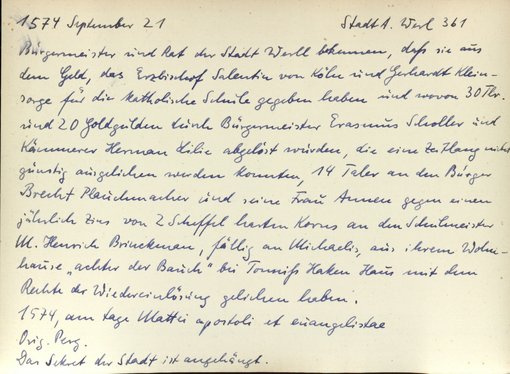 1574 September 21 Stadt A. Werl 361
Bürgermeister und Rat der Stadt Werll bekennen, daß sie aus
dem Geld, das Erzbischof Salentin von Köln und Gerhardt Klein-
sorge für die katholische Schule gegeben haben und wovon 30 Tlr.
und 20 Goldgülden durch Bürgermeister Erasmus Scholler und
Kämmerer Herman Lilie abgelöst wurden, die eine Zeitlang nicht
günstig ausgeliehen werden konnten, 14 Taler an den Bürger
Brecht Plaichmacher und seine Frau Annen gegen einen
jährlich Zins von 2 Scheffel harten Korns an den Schulmeister
M. Henrich Brinckman, fällig an Michaelis, aus ihrem Wohn-
hause „achter der Banch" bei Tonniß Haken Haus mit dem
Rechte der Wiedereinlösung geliehen haben.
1574, am tage Mattei apostoli et euangelistae
Orig. Perg.
Das Sekret der Stadt ist angehängt.